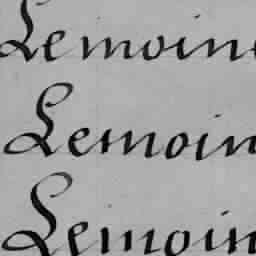 Lemoine
Lemoin
Lemoin